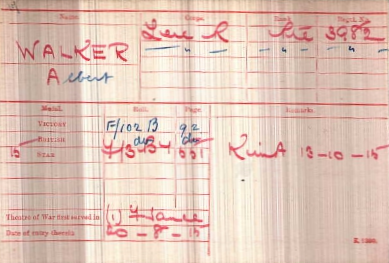 Name. Corps. Rank. Regtl. No.
WALKER Leic R Pte 3982
" " " " "
Albert
Medal. Roll. Page. Remarks.
VICTORY F/102 B 92
BRITISH do do
15 STAR KinA 13-10-15
Theatre of War first served in (1) France
Date of entry therein 20-8-15